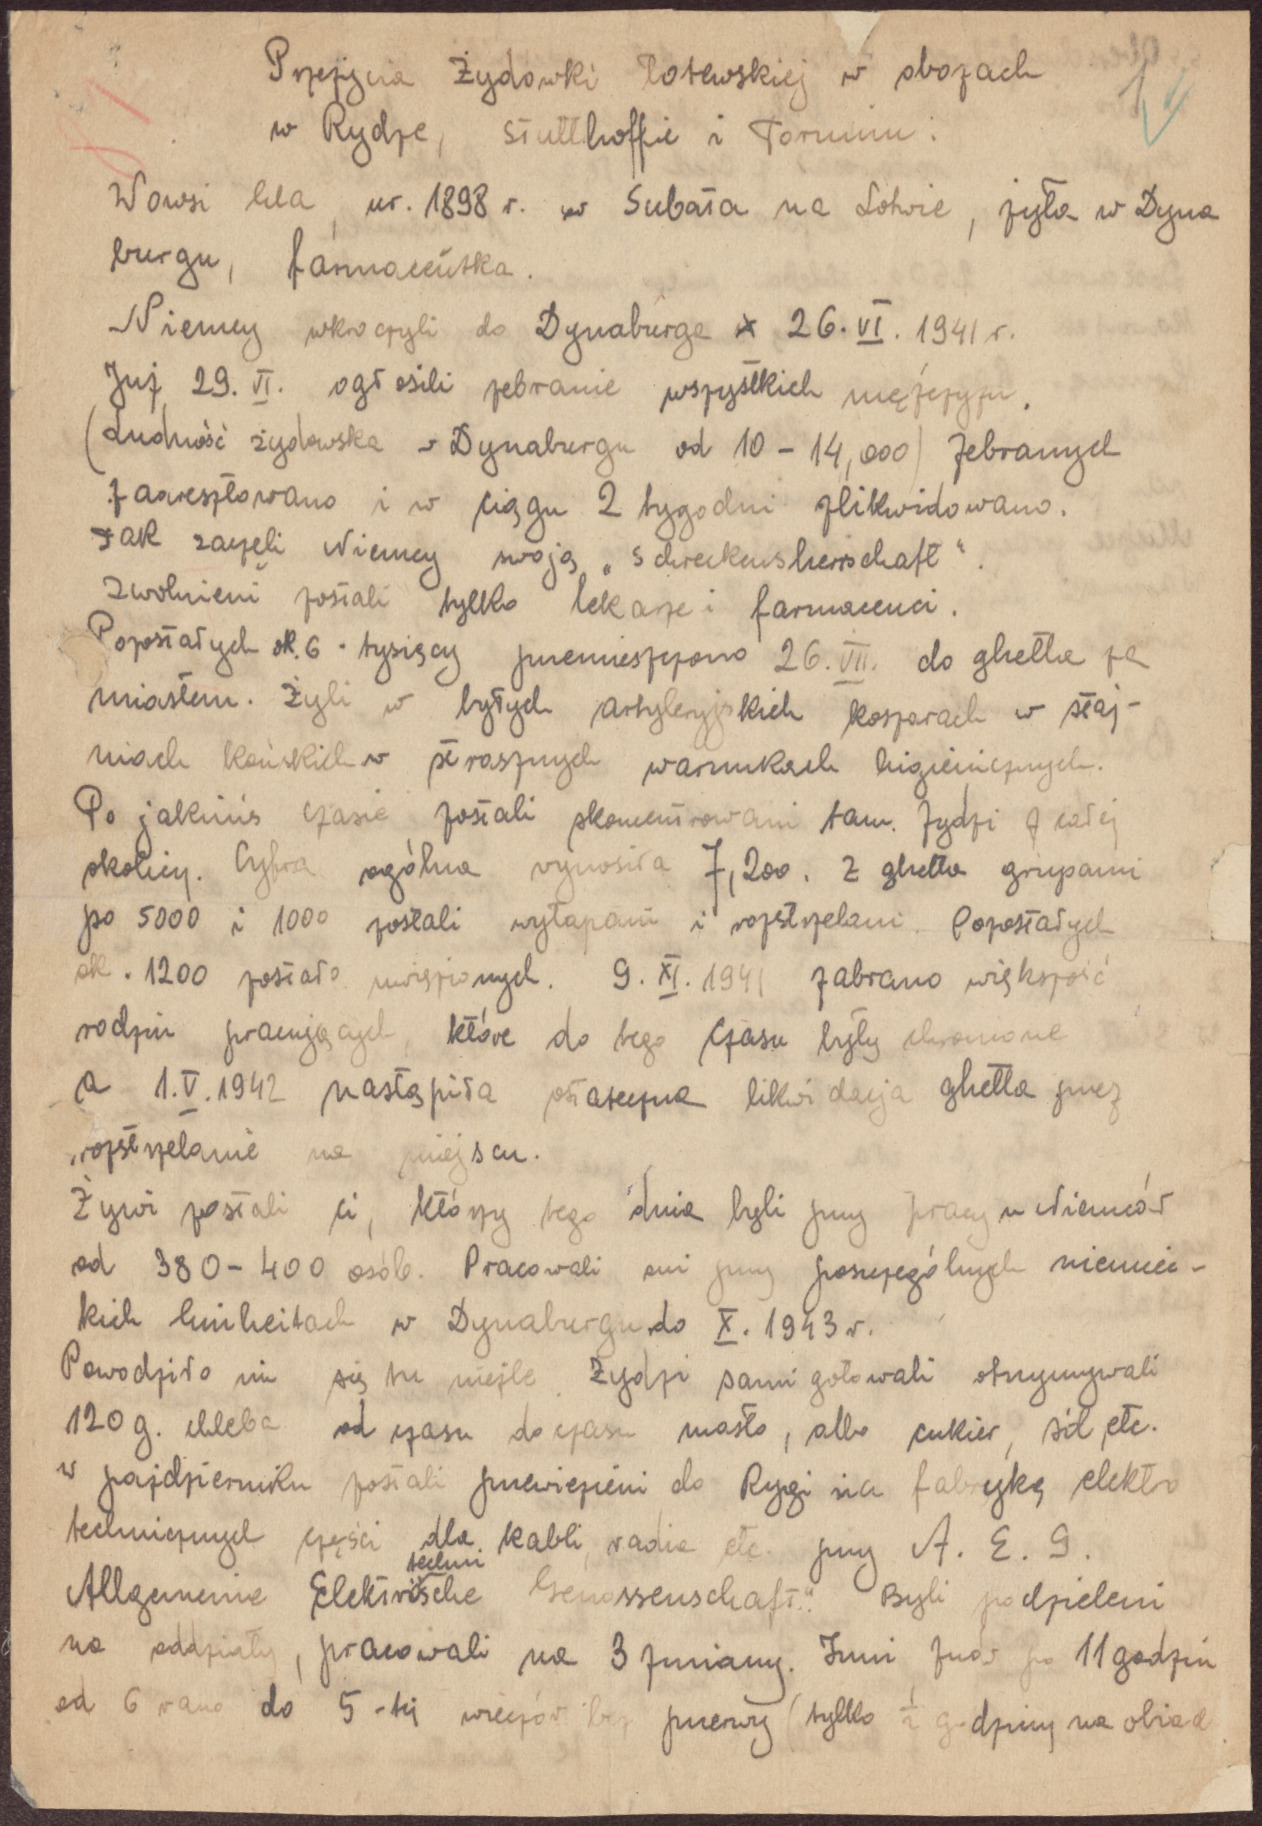 Przeżycia Żydówki łotewskiej w obozach
w Rydze, Stutthoffie i Toruniu.
1
Wowsi Ela, ur. 1898 r. w Subata na Łotwie, żyła w Dyna
burgu, farmaceutka.
Niemcy wkroczyli do Dynaburga 26. VI. 1941 r.
Już 29. VI. ogłosili zebranie wszystkich mężczyzn.
(Ludność żydowska w Dynaburgu od 10 - 14,000) Zebranych
zaaresztowano i w ciągu 2 tygodni zlikwidowano.
Tak zaczęli Niemcy swoją „Schreckensherrschaft".
Zwolnieni zostali tylko lekarze i farmaceuci.
Pozostałych ok. 6 - tysięcy przemieszczono 26. VII. do ghetta za
miastem. Żyli w byłych artyleryjskich koszarach w staj-
niach końskich w strasznych warunkach higienicznych.
Po jakimś czasie zostali skoncentrowani tam Żydzi z całej
okolicy. Cyfra ogólna wynosiła 7,200. Z ghetta grupami
po 5000 i 1000 zostali wyłapani i rozstrzelani. Pozostałych
ok. 1200 zostało uwięzionych. 9. XI. 1941 zabrano większość
rodzin pracujących, które do tego czasu były chronione
a 1. V. 1942 nastąpiła ostateczna likwidacja ghetta przez
rozstrzelanie na miejscu.
Żywi zostali ci, którzy tego dnia byli przy pracy u Niemców
od 380 - 400 osób. Pracowali oni przy poszczególnych niemiec-
kich Einheitach w Dynaburgu do X. 1943 r.
Powodziło im się tu nieźle. Żydzi sami gotowali otrzymywali
120 g. chleba od czasu do czasu masło, albo cukier, sól etc.
w październiku zostali przewiezieni do Rygi na fabrykę elektro
technicznych części dla kabli, radia etc. przy A. E. G.
techni
Allgemeine Elektrische Genossenschaft." Byli podzieleni
na oddziały, pracowali na 3 zmiany. Inni znów po 11 godzin
od 6 rano do 5 - tej wieczór bez przerwy (tylko ½ godziny na obiad